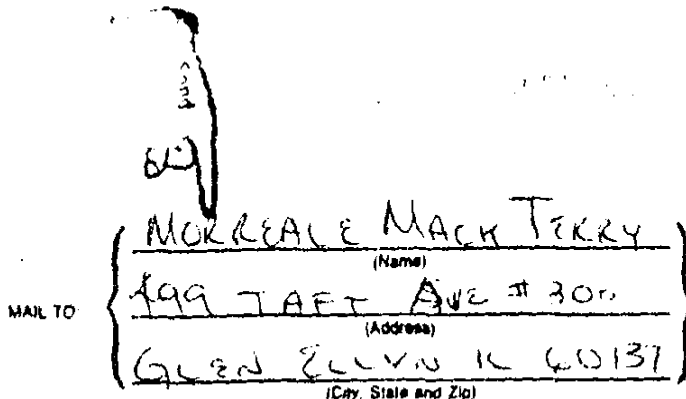 MORREALE MACK TERRY
(Name)
MAIL TO
499 TAFT AVE # 300
(Address)
GLEN ELLYN IL 60137
(City, State and Zip)